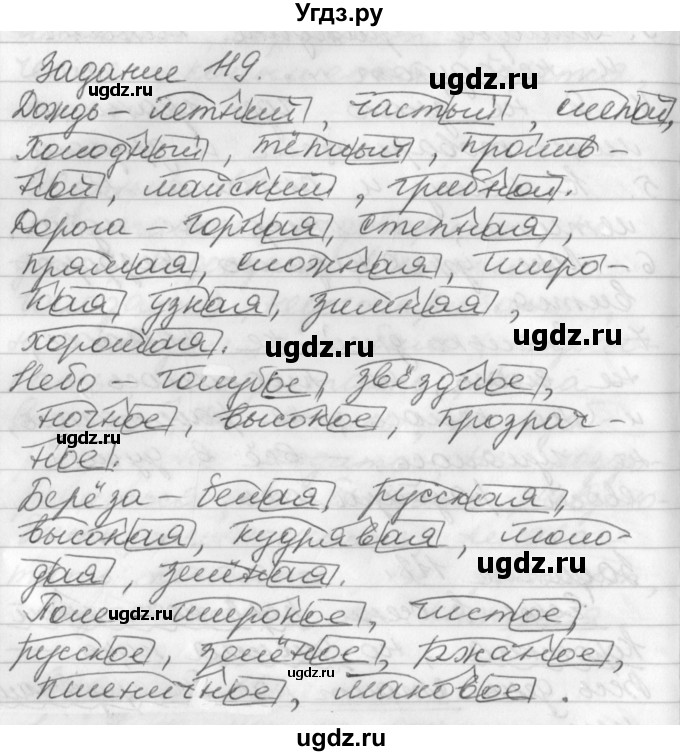 Угдз.ру
Задание 119.
ugdz.ru
ugdz.ru
Дождь – летний, частый, слепой,
холодный, тёплый, против-
ugdz.ru
ugdz.ru
ной, майский, грибной.
Дорога – горная, степная,
прямая, сложная, широ-
кая узкая, зимняя,
хорошая.
ugdz.ru
ugdz.ru
Небо – голубое, звёздное,
ночное, высокое, прозрач-
ugdz.ru
ное.
Берёза – белая, русская,
высокая, кудрявая, моло-
ugdz.ru
дая, зелёная.
Поле широкое, чистое,
ugdz.ru
русское, зелёное, ржаное,
ugdz.ru
пшеничное, маковое.
ugdz.ru